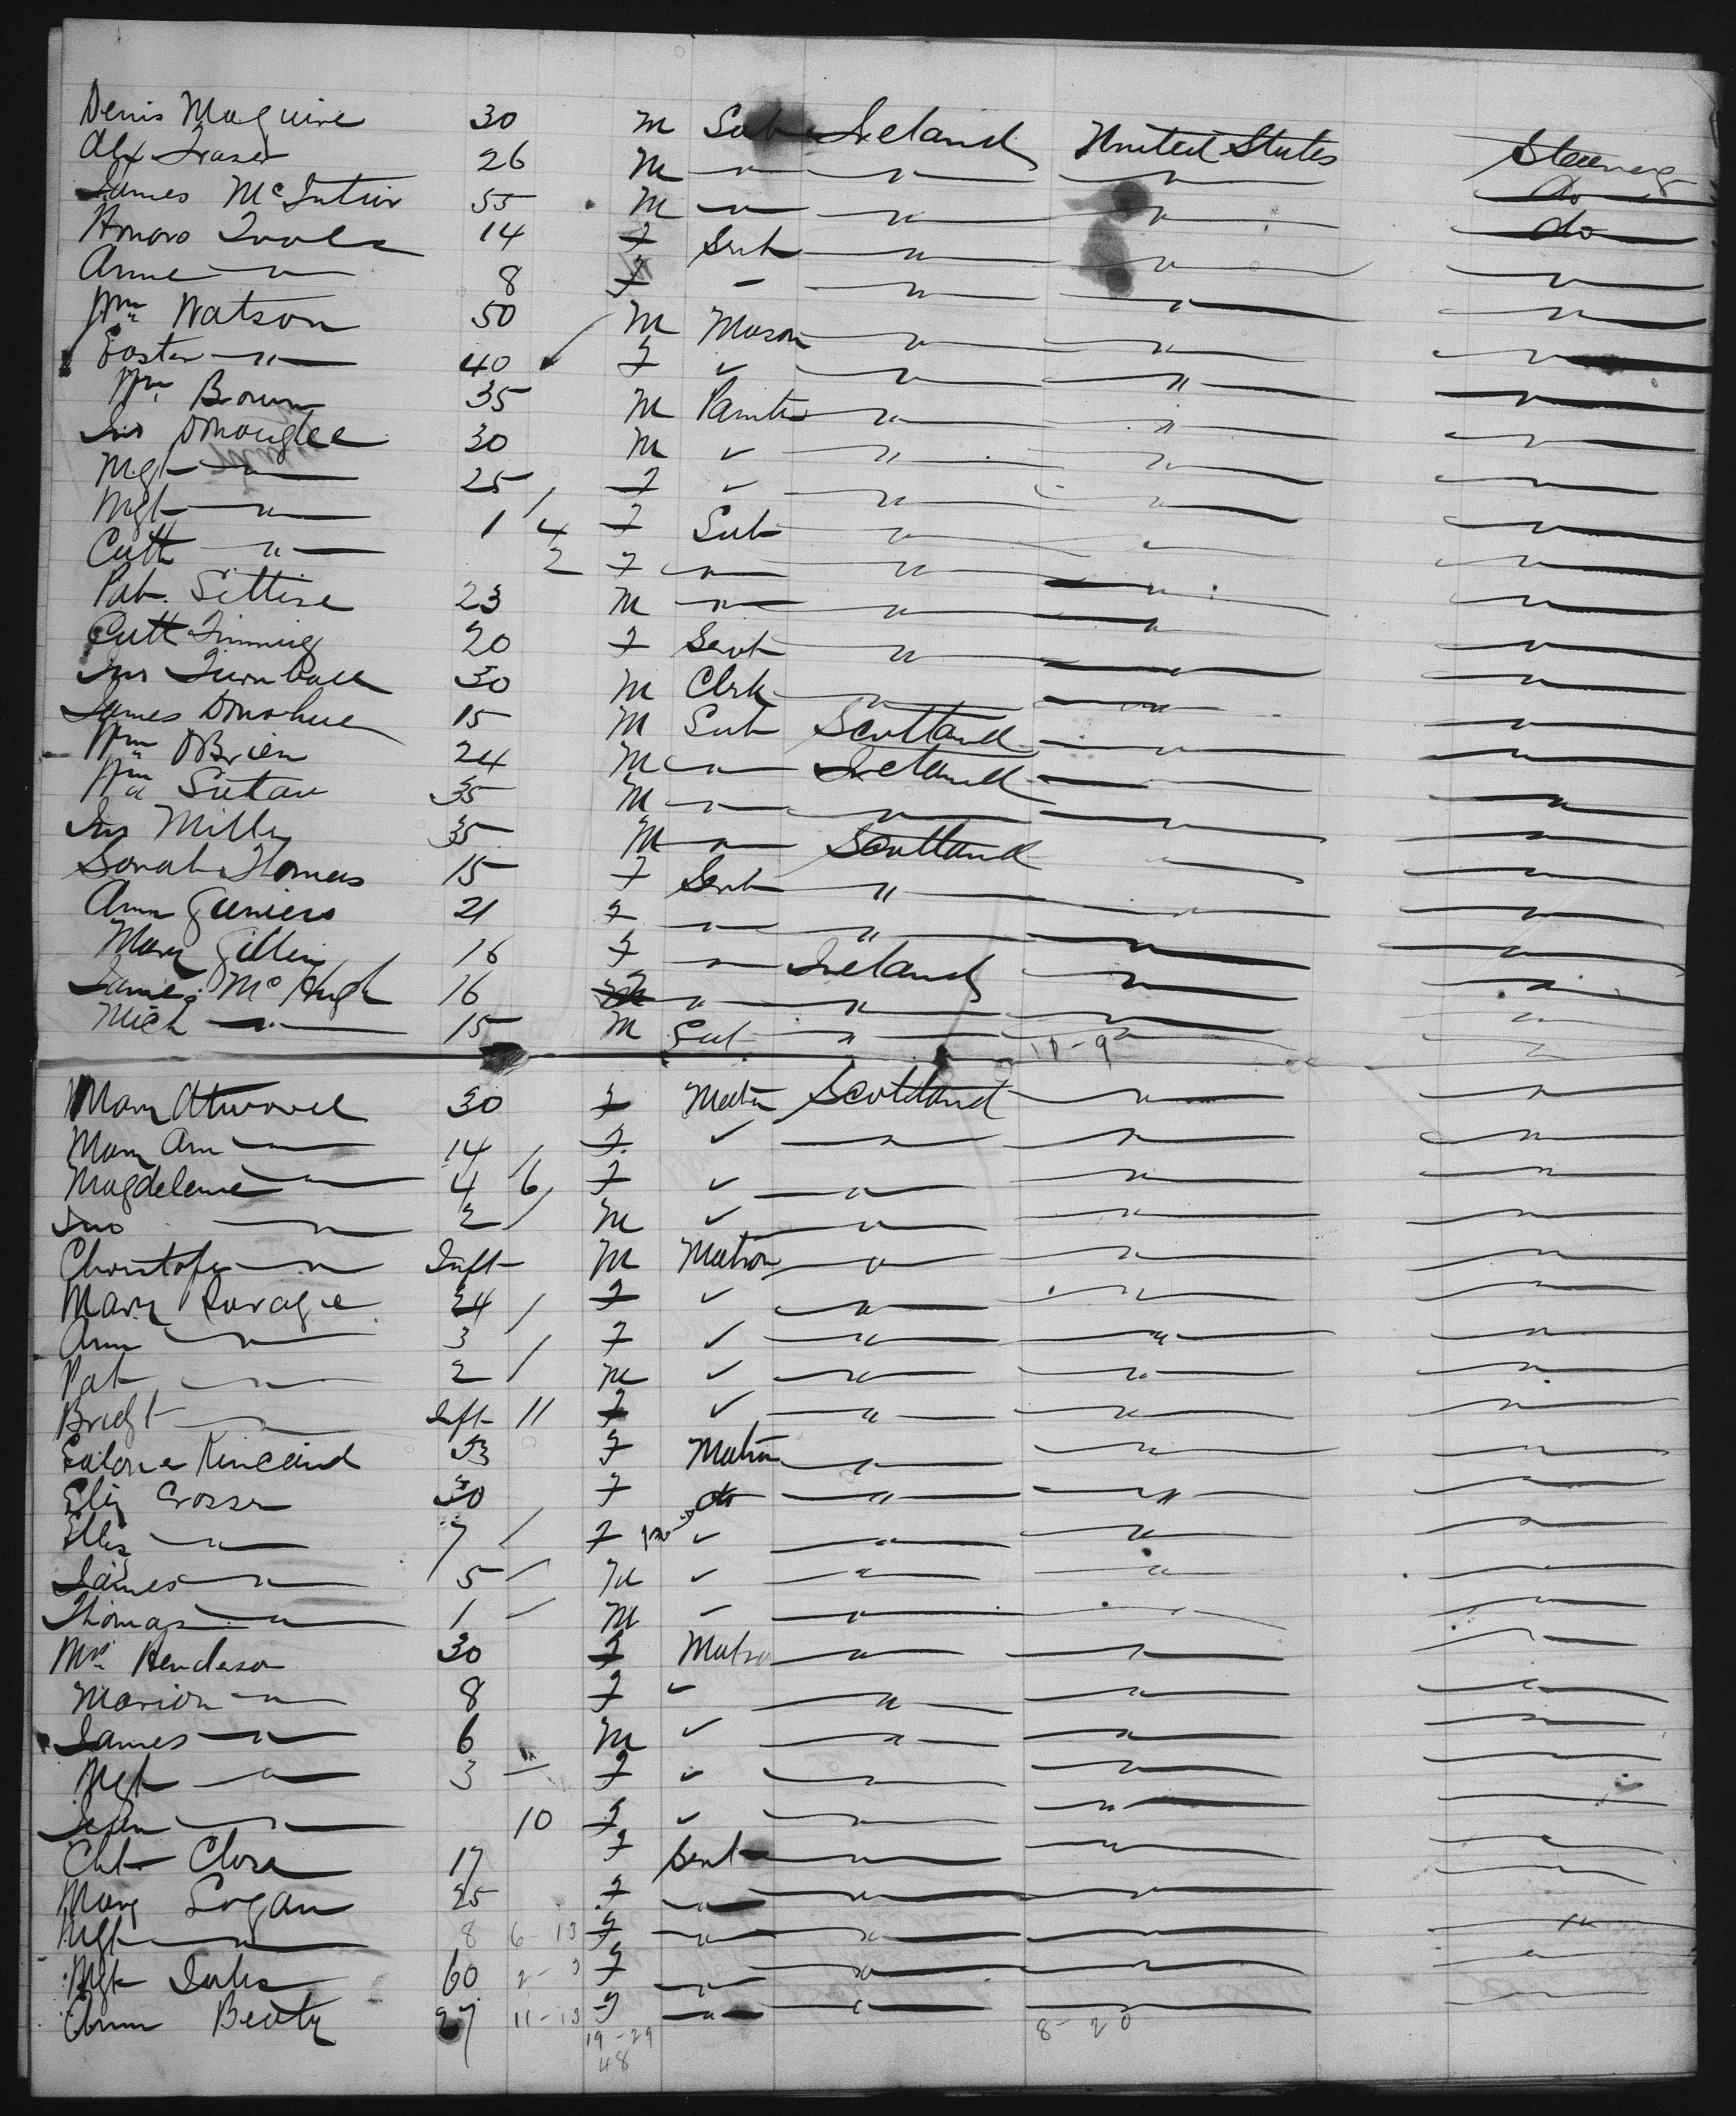 Denis Maguire 30 M Sub Ireland United States Steerage
Alex Fraser 26 M " " " do
James McIntire 55 M " " " do
Honora Toole 14 F Servt " " "
Anne " 8 F - " " "
Wm Watson 50 M Mason " " "
Easter " 40 F ✓ " " "
Wm Brown 35 M Painter " " "
Jno 30 M ✓ " " "
Mgt " 25 F ✓ " " "
Mgt " 1 4 F Sub " " "
Cath " 2 F " " " "
Pat. 23 M " " " "
Cath 20 F Servt " " "
Jno Turnbull 30 M Clrk " " "
James Donohue 15 M Sub Scotland " "
Wm OBrien 24 M " Ireland " "
Wm 35 M " " " "
Jno Miller 35 M " Scotland " "
Sarah Thomas 15 F Servt " " "
Ann 21 F " " " "
Mary 16 F " Ireland " "
James McHugh 16 " " " "
Mich " 15 M Sub " " "
11-9
Mary 30 F Matrn Scotland " "
Mary Ann " 14 / F ✓ " " "
Magdelene " 4 6 F ✓ " " "
Jno " 2 / M ✓ " " "
Christofer " Inft M Matron " " "
Mary 24 / F ✓ " " "
Ann " 3 / F ✓ " " "
Pat " 2 / M ✓ " " "
Bridgt " Inft 11 F ✓ " " "
Kincaid 33 F Matrn " " "
Eliz Crosser 30 F do " " "
Eliz " 7 / F ✓ " " "
James " 5 / M ✓ " " "
Thomas " 1 - M ✓ " " "
Mrs Henderson 30 F Matron " " "
Marion " 8 F ✓ " " "
James " 6 M ✓ " " "
Mgt " 3 - F ✓ " " "
" 10 F ✓ " " "
Cht Close 17 F Servt " " "
Mary Logan 25 F " " " "
Mgt " 8 6-13 F " " " "
Mgt 60 F " " " "
Beaty 27 11-13 F " " " "
19-29 8-20
48